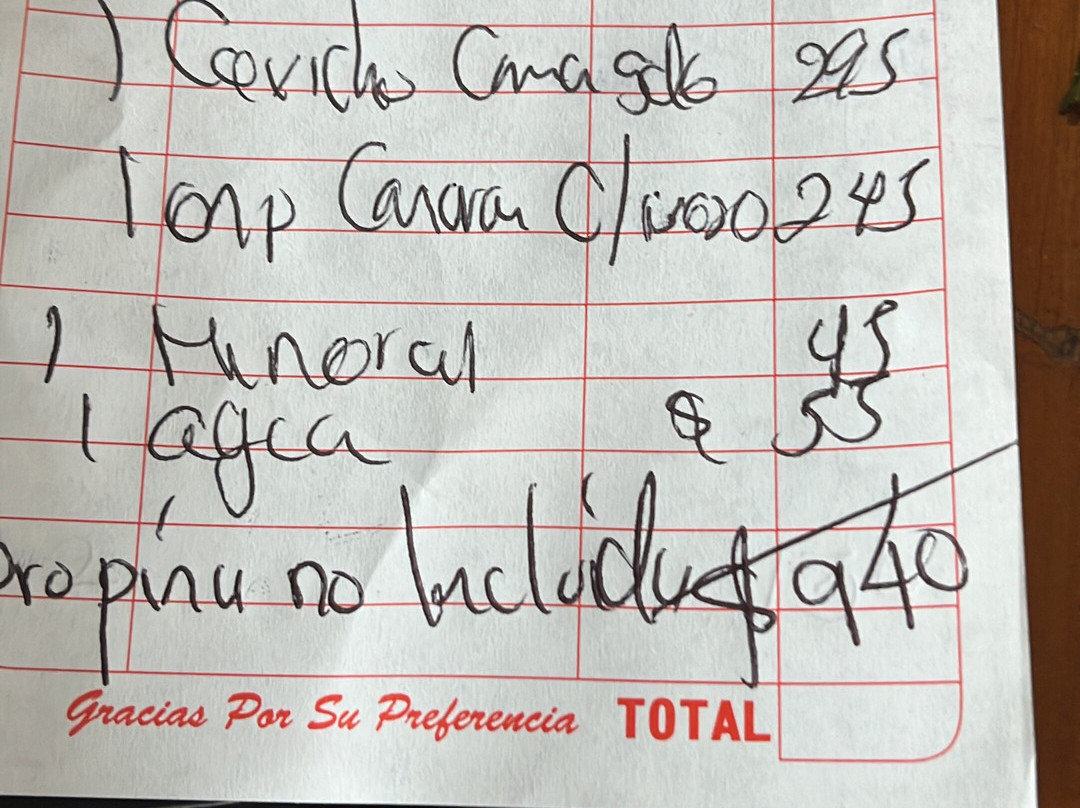 1 Ceviche 295
1 emp C/ 245
1 Mineral 45
1 agua $ 55
propina no Incluida $ 940
Gracias Por Su Preferencia TOTAL